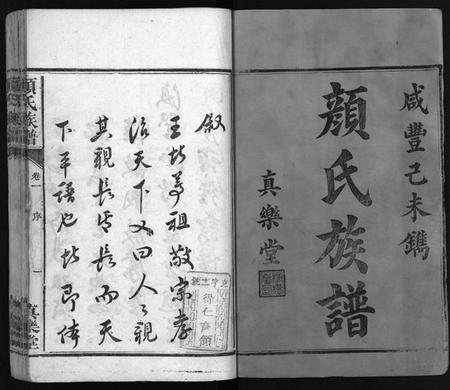 咸豐己未鐫
顏氏族譜
真樂堂
敘
王者尊祖敬宗孝
治天下又曰人人親
其親長其長而天
下平譜也者即体
顏氏族譜
卷一
序
一
真樂堂